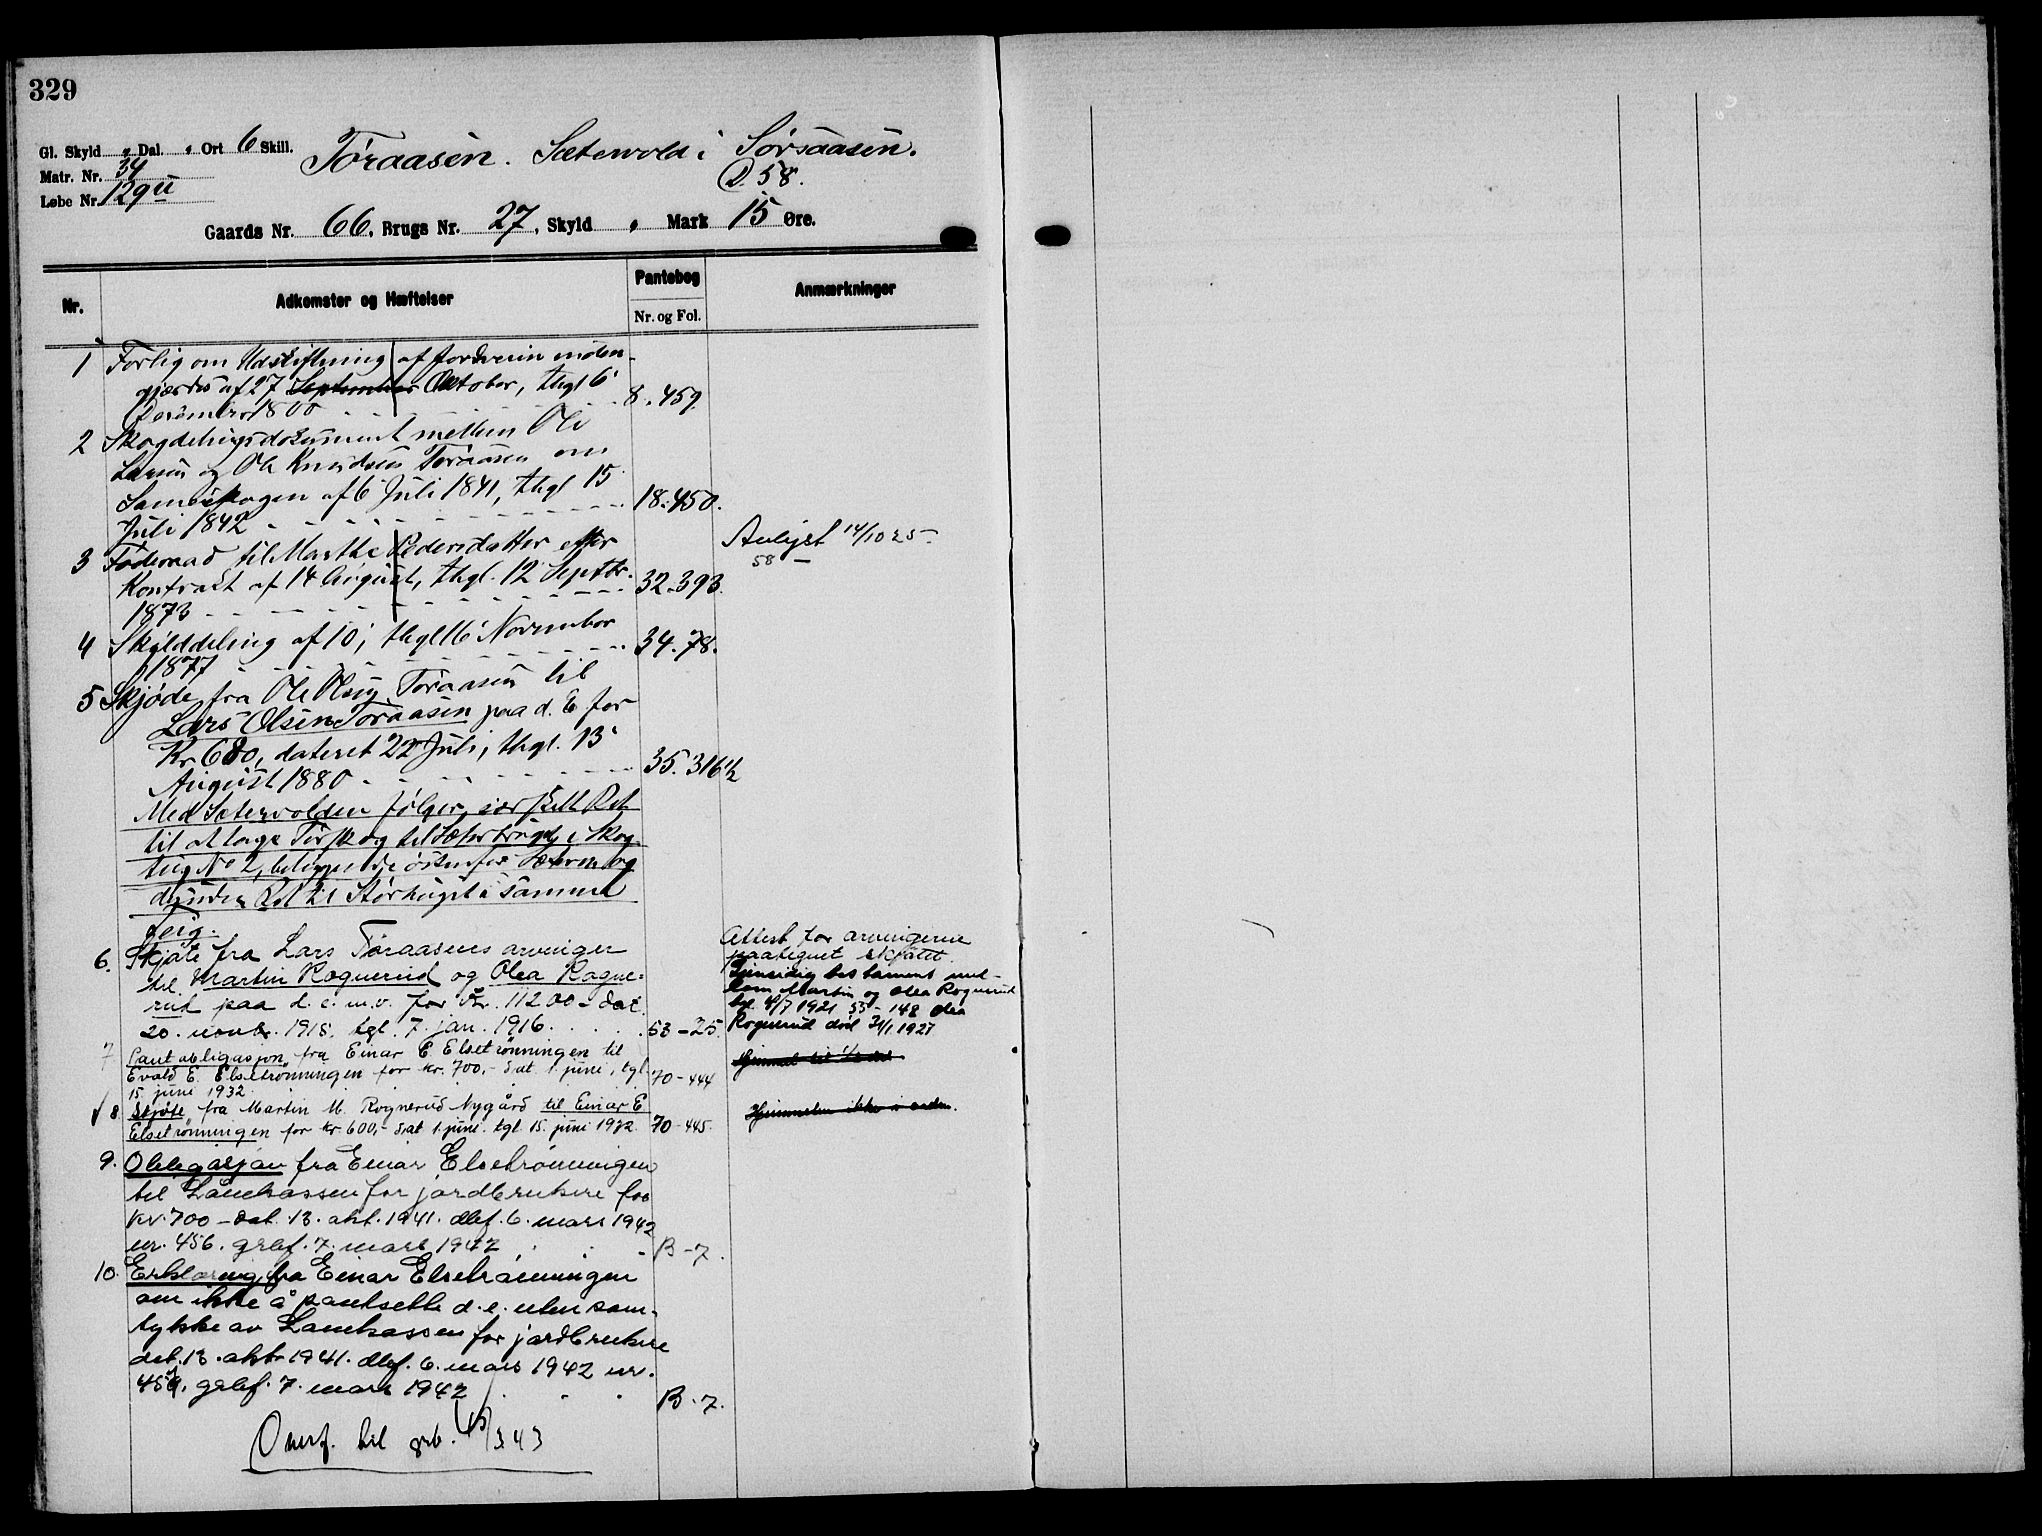 329
Gl. Skyld „ Dal. „ Ort 6 Skill.
Matr. Nr. 34
Løbe Nr. 129 u
Toraasen. Sætervold i Sørsaasen.
D. 58.
Gaards Nr. 66, Brugs Nr. 27, Skyld „ Mark 15 Øre.
Nr.
Adkomster og Hæftelser
Pantebog
Nr. og Fol.
Anmærkninger
1 Forlig om Udskiftning af Jordveien inden-
gjærdes af 27 September Oktober, thgl 6
December 1800 8. 459.
2 Skogdelingsdokument mellem Ole
Larsen og Ole Knudsen Toraasen om
Sameiskogen af 6 Juli 1841, thgl 15
Juli 1842 18. 450.
3 Føderaad til Marthe Pedersdatter efter
Kontrakt af 14 August, thgl. 12 Septbr.
1873 32-393.
Avlyst 14/10 25-
58 -
4 Skylddeling af 10, thgl 16 November
1877 34. 78.
5 Skjøde fra Ole Olsen Toraasen til
Lars Olsen Toraasen paa d. E for
Kr 680, dateret 22 Juli, thgl. 13
August 1880 35. 316 1/2
Med Sætervolden følger særskilt Ret
til at tage Tørskog til Sæterbrug i Skog-
teig No 2, beliggende østenfor Sæteren og
desuden Ret til Størhugst i samme
Teig.
6. Skjøte fra Lars Toraasens arvinger
til Martin Rognerud og Olea Rogne-
rud paa d. e. m. v. for kr. 11200 - dat
20. novbr. 1915. tgl. 7. jan. 1916. 53-25.
Attest for arvingerne
paategnet skjøtet.
Gjensidig testament mel-
lem Martin og Olea Rognerud
tgl. 4/7 1921 55-148 Olea
Rognerud død 31/1 1927
7 Pantobligasjon fra Einar E Elsetrønningen til
Evald E. Elsetrønningen for kr. 700,- dat 1. juni, tgl.
15. juni 1932 70-444
Hjemmel til 1/2 del
8. Skjøte fra Martin M. Rognerud Nygård til Einar E
Elsetrønningen for kr 600,- dat 1. juni. tgl. 15. juni 1932. 70-445.
Hjemmelen ikke i orden.
9. Obligasjon fra Einar Elsetrønningen
til Lånekassen for jordbrukere for
kr. 700 - dat. 13. okt. 1941. dbf. 6. mars 1942
nr. 456. grbf. 7. mars 1942 B-7.
10. Erklæring fra Einar Elsetrønningen
om ikke å pantsette d. e. uten sam-
tykke av Lånekassen for jordbrukere
dat. 13. okt. 1941. dbf. 6. mars 1942 nr.
457. grbf. 7. mars 1942 B. 7.
Overf. til grb. 15/3 43